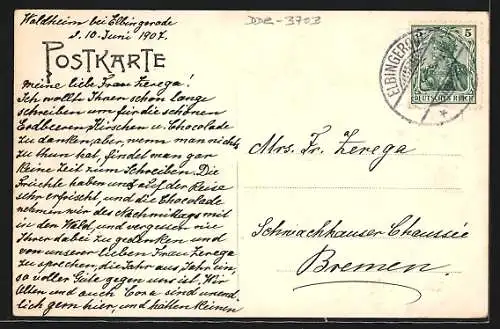 Waldheim bei Elbingerode
d. 10. Juni 1907.
DDR-3703
POSTKARTE
meine liebe Frau Zerega!
Ich wollte Ihnen schon lange
schreiben um für die schönen
Erdbeeren, Kirschen u. Chocolade
zu danken, aber, wenn man nichts
zu thun hat, findet man gar
keine Zeit zum Schreiben. Die
Früchte haben uns auf der Reise
sehr erfrischt, und die Chocolade
nehmen wir des Nachmittags mit
in den Wald, und vergessen nie
Ihrer dabei zu gedenken und
von unserer lieben Frau Zerega
zu sprechen, die Jahr aus Jahr ein,
so voller Güte gegen uns ist. Wir
Alten und auch Cora sind unend-
lich gern hier, und hätten keinen
ELBINGERODE
5 5
DEUTSCHES REICH
Mrs. Fr. Zerega
Schwachhauser Chaussée
Bremen.